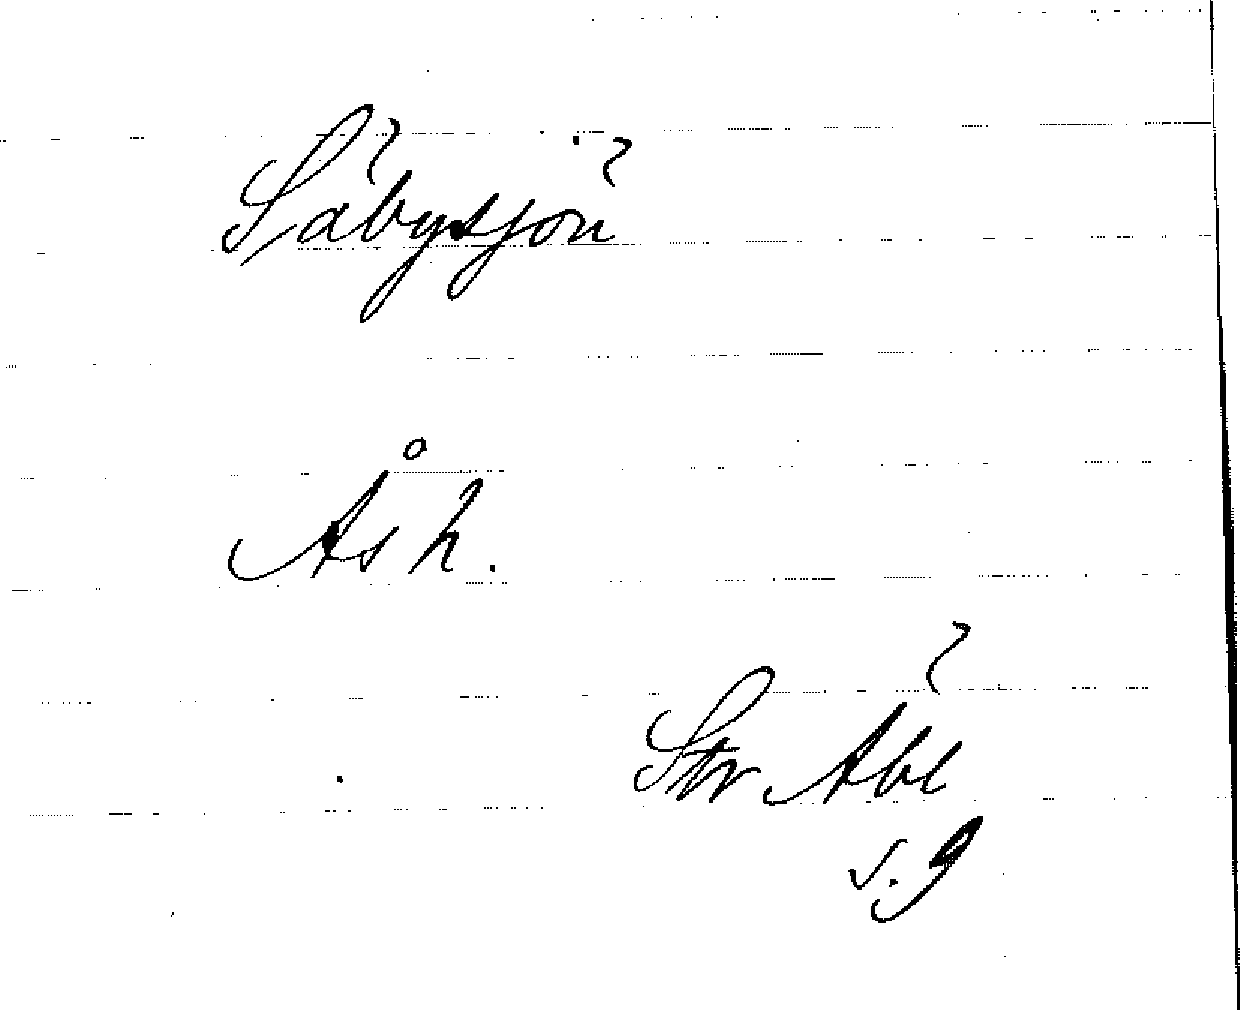 Säbysjön
Ås h.
Str Äbl
s. 9